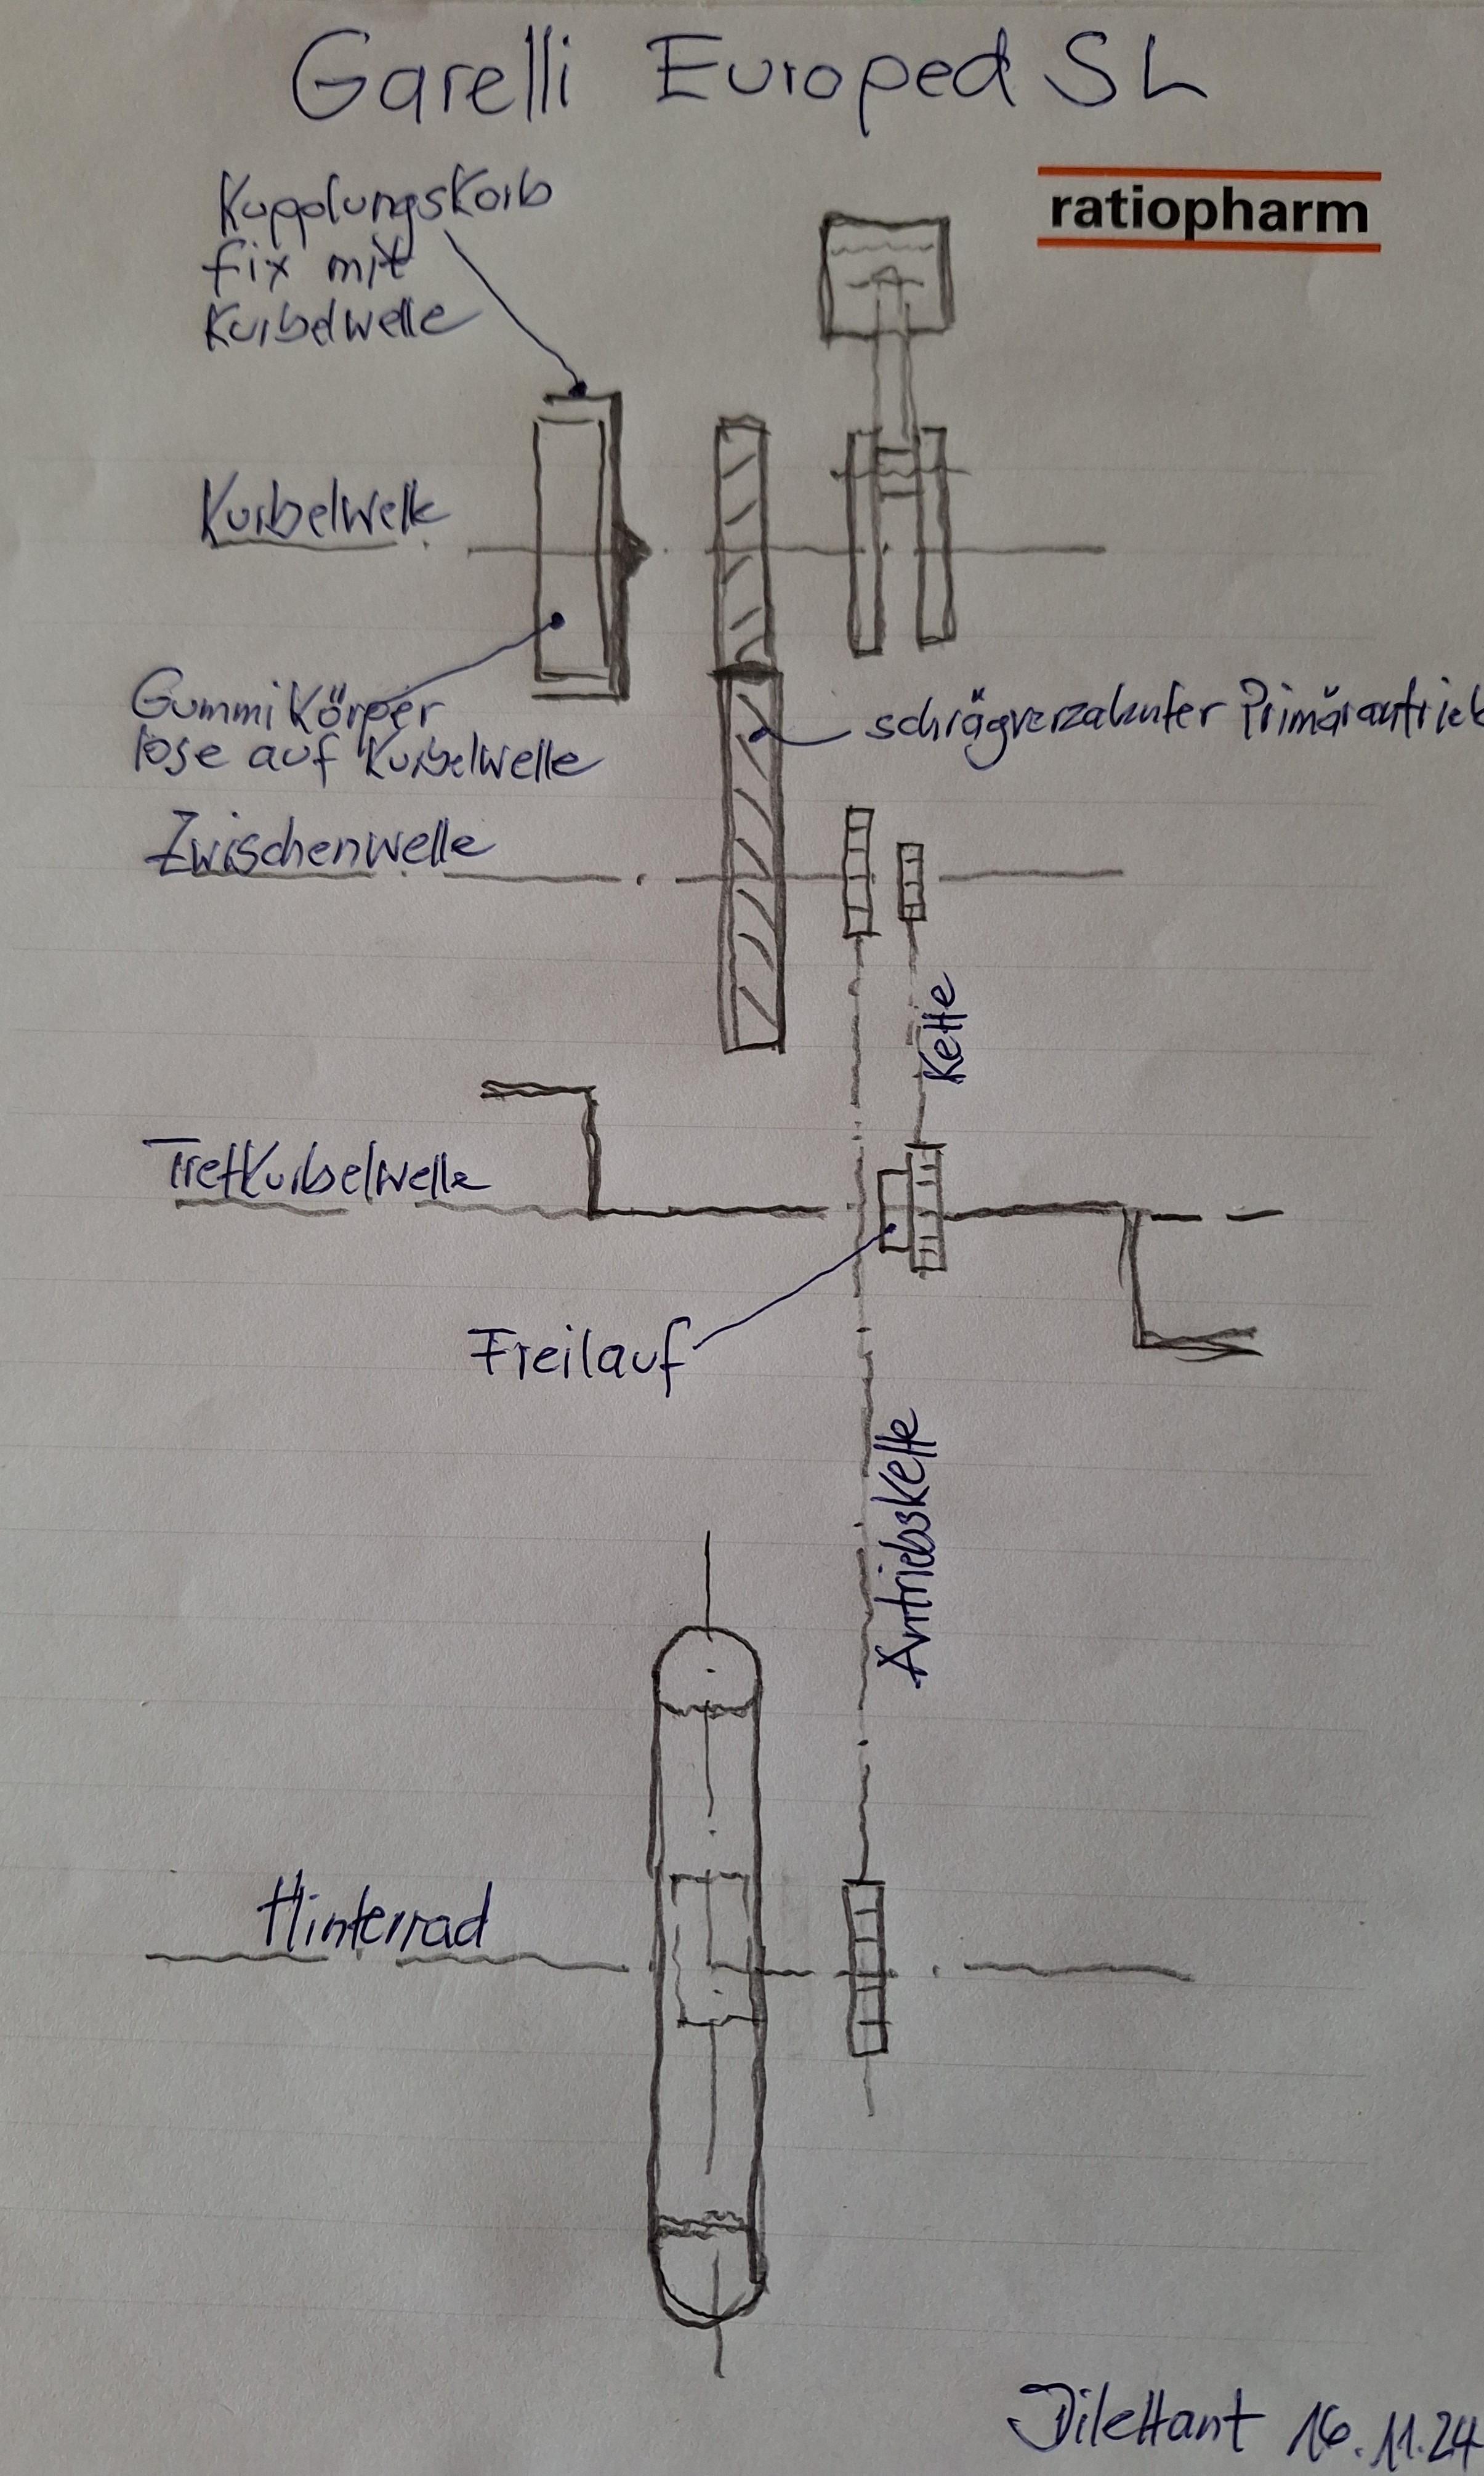 Garelli Europed SL
ratiopharm
Kupplungskorb
fix mit
Kurbelwelle
Kurbelwelle
Gummikörper
lose auf Kurbelwelle
schrägverzahnter Primärantrieb
Zwischenwelle
Kette
Tretkurbelwelle
Freilauf
Antriebskette
Hinterrad
Dilettant 16.11.24